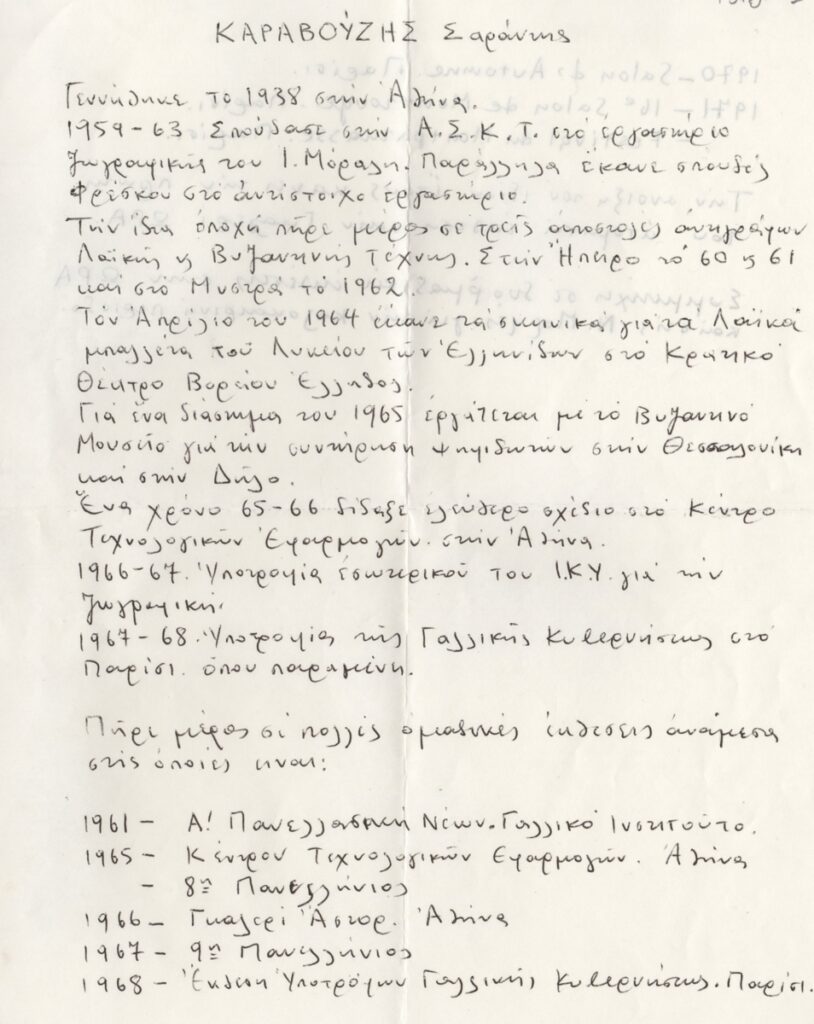 ΚΑΡΑΒΟΎΖΗΣ Σαράντης
Γεννήθηκε το 1938 στήν Ἀθήνα.
1959-63 Σπούδασε στήν Α.Σ.Κ.Τ. στό ἐργαστήριο
ζωγραφικῆς του Ι. Μόραλη. Παράλληλα ἔκανε σπουδές
Φρέσκου στό ἀντίστοιχο ἐργαστήριο.
Τήν ἴδια ἐποχή πῆρε μέρος σε τρεῖς ἀποστολές ἀντιγράφων
Λαϊκῆς ϗ Βυζαντινῆς Τέχνης. Στήν Ἤπειρο τό 60 ϗ 61
καί στό Μυστρά τό 1962.
Τόν Ἀπρίλιο του 1964 ἔκανε τά σκηνικά γιά τα Λαϊκά
μπαλλέτα τοῦ Λυκείου τῶν Ἑλληνίδων στό Κρατικό
Θέατρο Βορείου Ἑλλάδος.
Γιά ἕνα διάστημα του 1965 ἐργάζεται μέ τό Βυζαντινό
Μουσεῖο γιά τήν συντήρηση ψηφιδωτῶν στήν Θεσσαλονίκη
καί στήν Δῆλο.
Ἕνα χρόνο 65-66 δίδαξε ἐλεύθερο σχέδιο στό Κέντρο
Τεχνολογικῶν Ἐφαρμογῶν. στήν Ἀθήνα.
1966-67. Ὑποτροφία ἐσωτερικοῦ του Ι.Κ.Υ. γιά τήν
ζωγραφική.
1967-68. Ὑποτροφία τῆς Γαλλικῆς Κυβερνήσεως στό
Παρίσι. ὅπου παραμένη.
Πῆρε μέρος σέ πολλές ὁμαδικές ἐκθέσεις ἀνάμεσα
στίς ὁποίες εἶναι:
1961 - Α! Πανελλαδική Νέων. Γαλλικό Ινστιτούτο.
1965 - Κέντρον Τεχνολογικῶν Εφαρμογῶν. Ἀθήνα
- 8η Πανελλήνιος
1966 - Γκαλερί Ἄστορ. Ἀθήνα
1967 - 9η Πανελλήνιος
1968 - Ἔκθεση Ὑποτρόφων Γαλλικῆς Κυβερνήσεως. Παρίσι.